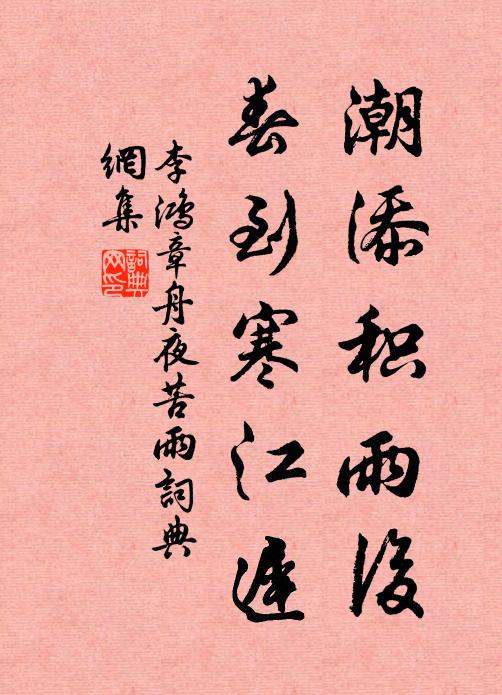 潮添积雨後
春到寒江遲
李鴻章舟夜苦雨詞典
網集
詞典
网印